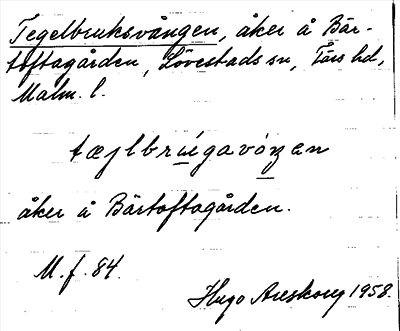 Tegelbruksvången, åker å Bär-
toftagården, Lövestads sn, Färs hd,
Malm. l.
tæjlbrúgavóŋan
åker å Bärtoftagården.
M.f. 84.
Hugo Areskoug 1958.